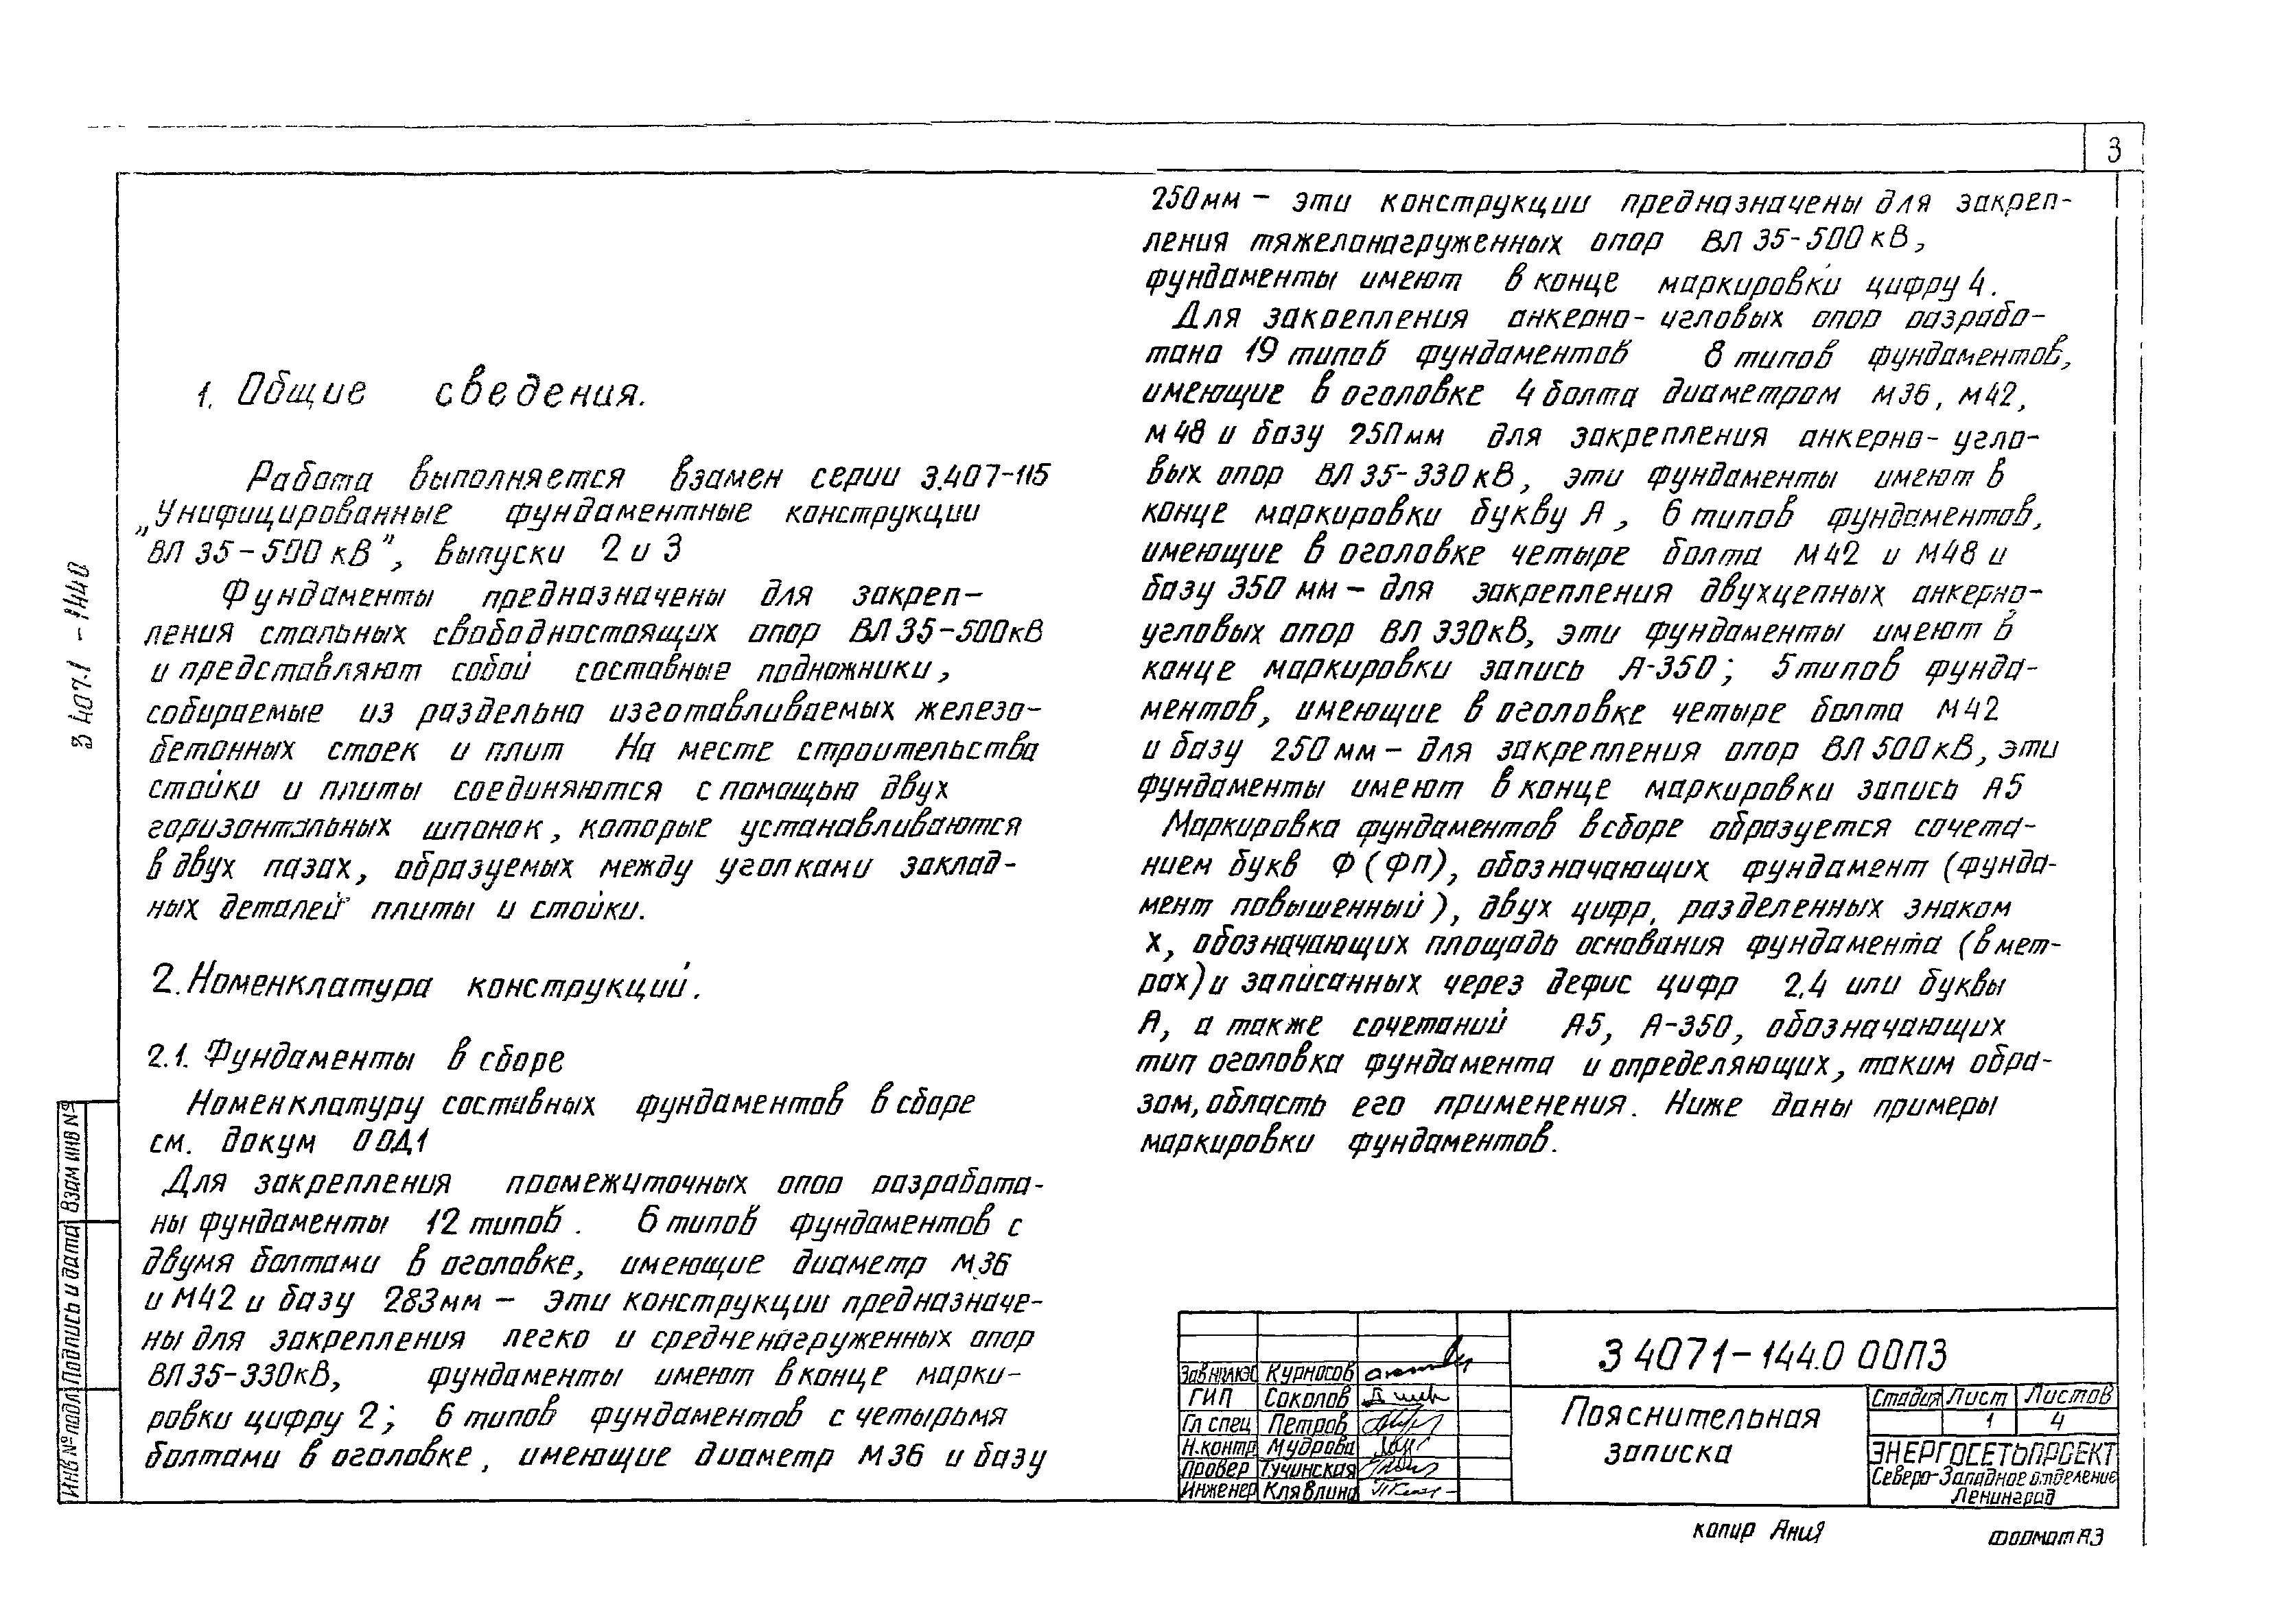 3
1. Общие сведения.
Работа выполняется взамен серии 3.407-115
„Унифицированные фундаментные конструкции
ВЛ 35-500 кВ", выпуски 2 и 3
Фундаменты предназначены для закреп-
ления стальных свободностоящих опор ВЛ 35-500кВ
и представляют собой составные подножники,
собираемые из раздельно изготавливаемых железо-
бетонных стоек и плит На месте строительства
стойки и плиты соединяются с помощью двух
горизонтальных шпонок, которые устанавливаются
в двух пазах, образуемых между уголками заклад-
ных деталей плиты и стойки.
2. Номенклатура конструкций.
2.1. Фундаменты в сборе
Номенклатуру составных фундаментов в сборе
см. докум 00Д1
Для закрепления промежуточных опор разработа-
ны фундаменты 12 типов. 6 типов фундаментов с
двумя болтами в оголовке, имеющие диаметр М36
и М42 и базу 283мм — эти конструкции предназначе-
ны для закрепления легко и средненагруженных опор
ВЛ35-330кВ, фундаменты имеют в конце марки-
ровки цифру 2; 6 типов фундаментов с четырьмя
болтами в оголовке, имеющие диаметр М36 и базу
250мм — эти конструкции предназначены для закреп-
ления тяжелонагруженных опор ВЛ 35-500кВ,
фундаменты имеют в конце маркировки цифру 4.
Для закрепления анкерно-угловых опор разрабо-
тано 19 типов фундаментов 8 типов фундаментов,
имеющие в оголовке 4 болта диаметром М36, М42,
М48 и базу 250мм для закрепления анкерно-угло-
вых опор ВЛ 35-330кВ, эти фундаменты имеют в
конце маркировки букву А, 6 типов фундаментов,
имеющие в оголовке четыре болта М42 и М48 и
базу 350 мм — для закрепления двухцепных анкерно-
угловых опор ВЛ 330кВ, эти фундаменты имеют в
конце маркировки запись А-350; 5 типов фунда-
ментов, имеющие в оголовке четыре болта М42
и базу 250мм — для закрепления опор ВЛ 500кВ, эти
фундаменты имеют в конце маркировки запись А5
Маркировка фундаментов в сборе образуется сочета-
нием букв Ф (ФП), обозначающих фундамент (фунда-
мент повышенный), двух цифр, разделенных знаком
х, обозначающих площадь основания фундамента (в мет-
рах) и записанных через дефис цифр 2,4 или буквы
А, а также сочетаний А5, А-350, обозначающих
тип оголовка фундамента и определяющих, таким обра-
зом, область его применения. Ниже даны примеры
маркировки фундаментов.
3 407.1 - 144.0
Инв № подл Подпись и дата Взам инв №
Курносов
ГИП Соколов
Гл спец Петров
Н.контр Мудрова
Провер Тучинская
Инженер Клявлина
3 407.1-144.0 00ПЗ
Пояснительная
записка
Стадия Лист Листов
1 4
ЭНЕРГОСЕТЬПРОЕКТ
Северо-Западное отделение
Ленинград
копир Аниq
формат А3